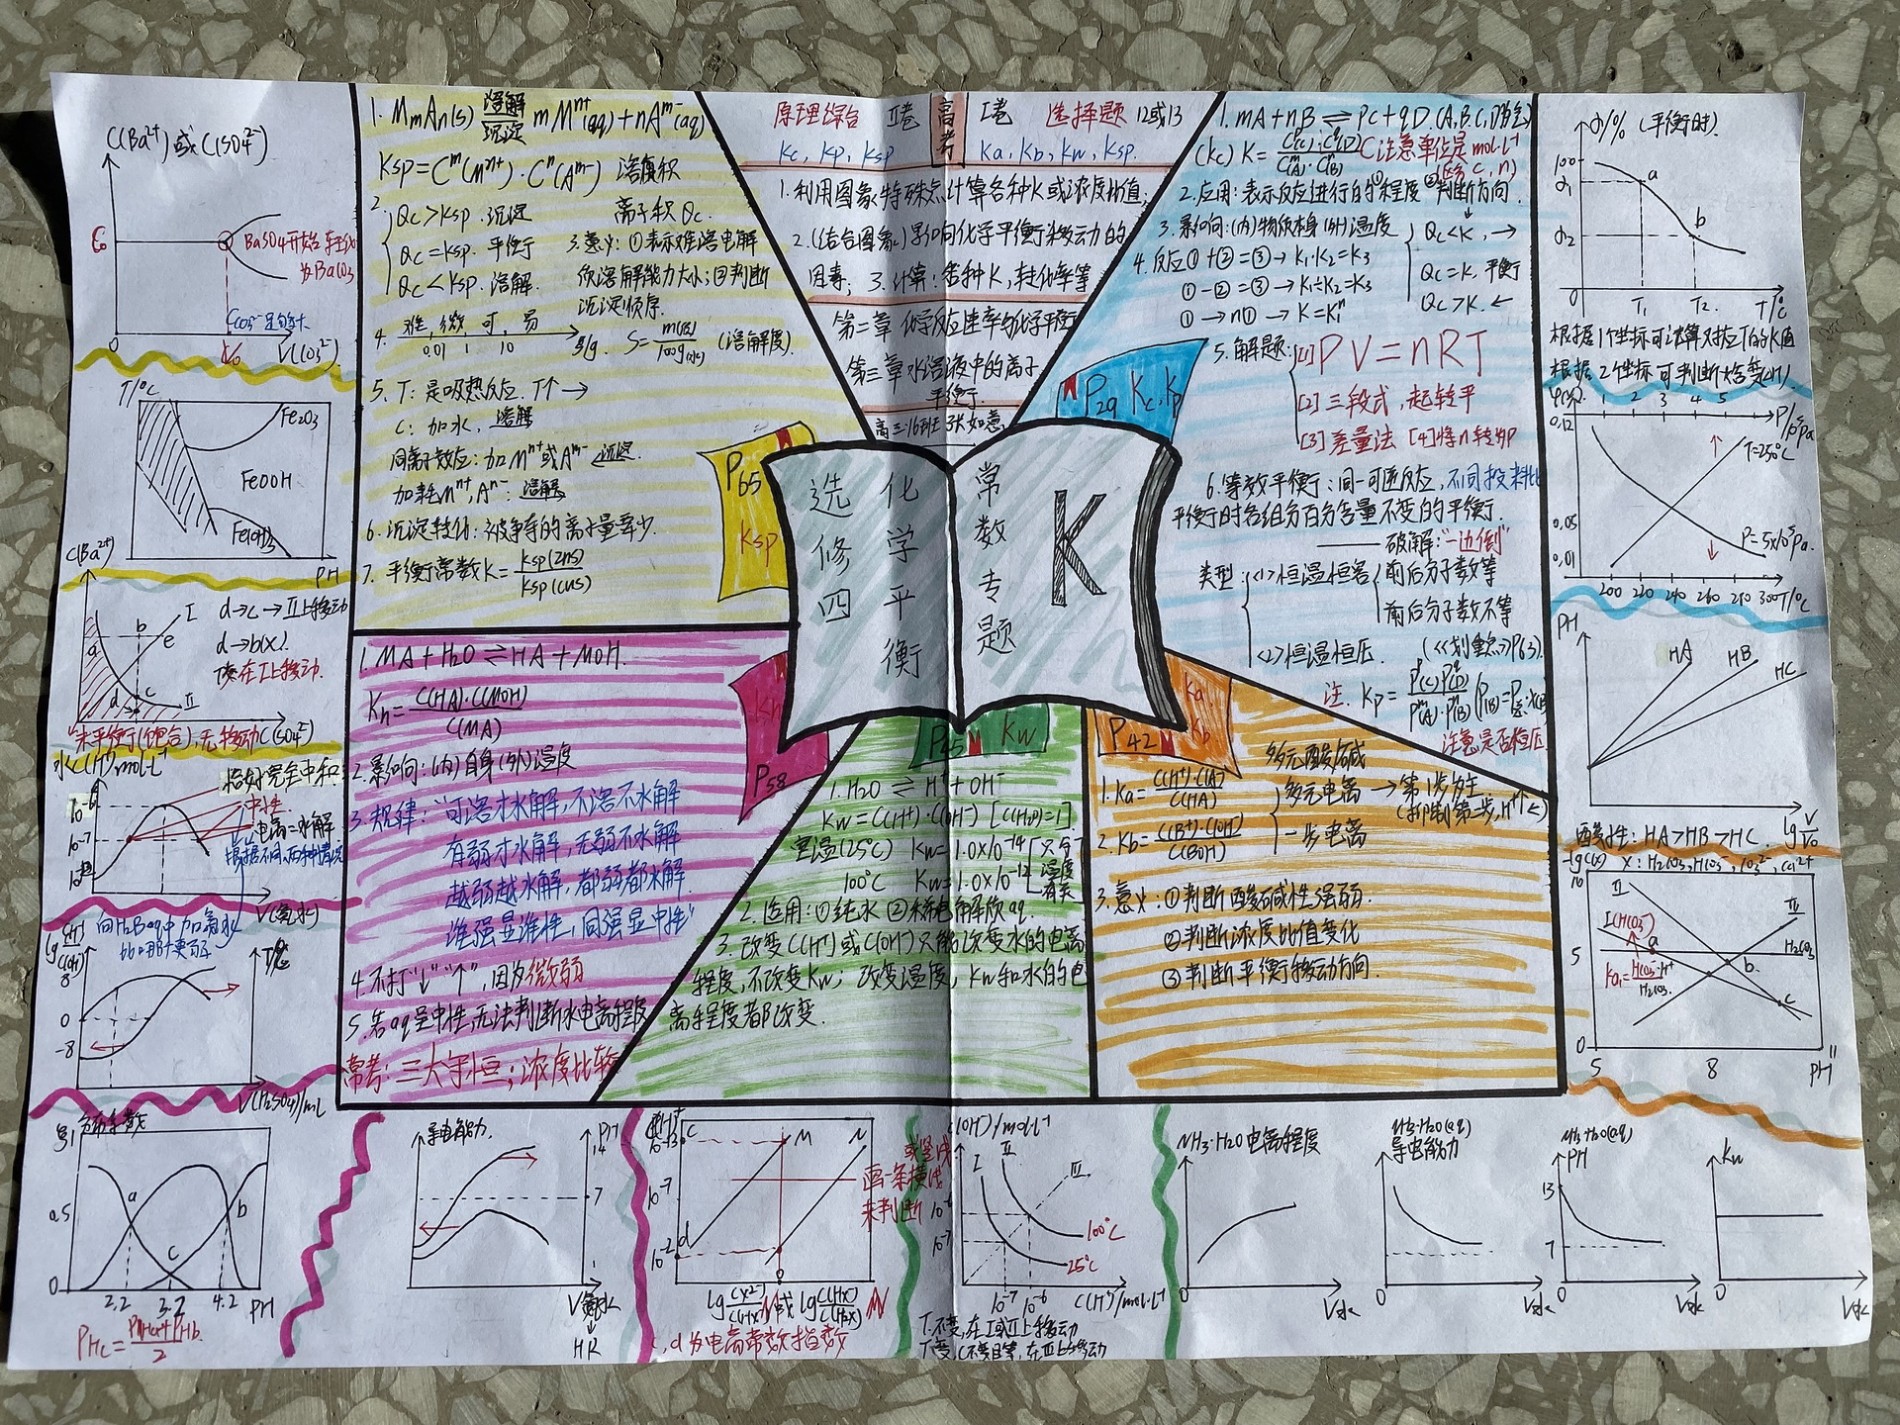 原理综合 Ⅱ卷 高考 Ⅰ卷 选择题 12或13
Kc, Kp, Ksp
Ka, Kb, Kw, Ksp.
1. 利用图象特殊点计算各种K或浓度比值;
2. (结合图象) 影响化学平衡移动的
因素; 3. 计算: 各种K, 转化率等
第二章 化学反应速率与化学平衡
第三章 水溶液中的离子
平衡.
高三·16班 张如意
选修四
化学平衡
常数专题
K
P65 Ksp
P29 Kc, Kp
Kh P58
P45 Kw
P42 Ka Kb
1. MmAn(s) 溶解 沉淀 mMⁿ⁺(aq)+nAᵐ⁻(aq)
Ksp=Cᵐ(Mⁿ⁺)·Cⁿ(Aᵐ⁻) 溶度积
2. Qc>Ksp 沉淀 离子积 Qc.
Qc=Ksp. 平衡
Qc<Ksp. 溶解.
3. 意义: ①表示难溶电解
质溶解能力大小; ②判断
沉淀顺序.
4. 难, 微 可, 易
0.01 1 10 g/g.
S=m(质)/100g(水) (溶解度).
5. T: 是吸热反应. T↑→
C: 加水, 溶解
同离子效应: 加Mⁿ⁺或Aᵐ⁻ ← 沉淀.
加耗Mⁿ⁺, Aⁿ⁻: 溶解
6. 沉淀转化: 被争夺的离子量要少.
7. 平衡常数K=Ksp(ZnS)/Ksp(CuS)
1. mA+nB⇌pC+qD (A,B,C,D为气)
(Kc) K=Cᵖ(C)·C^q(D)/Cᵐ(A)·Cⁿ(B) C注意单位是mol·L⁻¹
(区分c, n)
2. 应用: ①表示反应进行的程度 ②判断方向.
3. 影响: (内)物质本身(外)温度
Qc<K, →
Qc=K, 平衡
Qc>K. ←
4. 反应①+②=③→K₁·K₂=K₃
①-②=③→K₁÷K₂=K₃
①→n①→K=K₁ⁿ
5. 解题: [1]PV=nRT
[2]三段式, 起转平
[3]差量法 [4]将n转为P
6. 等效平衡: 同一可逆反应, 不同投料比
平衡时各组分百分含量不变的平衡.
——破解: "一边倒"
类型: <1>恒温恒容 前后分子数等
前后分子数不等
<2>恒温恒压. (<<划重点>>P63)
注. Kp=Pᵖ(C)P^q(D)/Pᵐ(A)·Pⁿ(B)
注意是否恒压
1. MA+H₂O⇌HA+MOH.
Kh=C(HA)·C(MOH)/C(MA)
2. 影响: (内)自身(外)温度
3. 规律: "可溶才水解, 不溶不水解
有弱才水解, 无弱不水解
越弱越水解, 都弱都水解
谁强显谁性, 同强显中性"
4. 不打"↓" "↑", 因为微弱
5. 若aq呈中性, 无法判断水电离程度
常考: 三大守恒; 浓度比较
1. H₂O⇌H⁺+OH⁻
Kw=C(H⁺)·C(OH⁻) [C(H₂O)=1]
室温(25℃) Kw=1.0×10⁻¹⁴
100℃ Kw=1.0×10⁻¹²
只与温度有关
2. 适用: ①纯水 ②稀电解质aq.
3. 改变C(H⁺)或C(OH⁻)只能改变水的电离
程度, 不改变Kw; 改变温度, Kw和水的电
离程度都改变.
多元酸碱
1. Ka=C(H⁺)·C(A⁻)/C(HA)
多元电离→第1步为主
(抑制第二步, H⁺←)
2. Kb=C(B⁺)·C(OH⁻)/C(BOH)
一步电离
3. 意义: ①判断酸碱性强弱.
②判断浓度比值变化
③判断平衡移动方向.
C(Ba²⁺)或C(SO₄²⁻)
C₀
BaSO₄开始转化
为BaCO₃
V₀ V(CO₃²⁻)
T/℃
Fe₂O₃
FeOOH
Fe(OH)₃
PH
C(Ba²⁺)
a b e I
d c Ⅱ
d→c→Ⅱ上移动
d→b(×).
T变在Ⅰ上移动.
"未平衡(饱和), 无移动 C(SO₄²⁻)
水C(H⁺)/mol·L⁻¹
恰好完全中和
中性.
电离=水解
10⁻⁶
10⁻⁷
V(氨水)
向H₂Baq中加氨水
lg C(H⁺)/C(OH⁻)
8
0
-8
V(H₂SO₄)/mL
分布系数
0.5
0
a b c
2.2 3.2 4.2 PH
导电能力
PH
14
7
V氨水
↓
HR
10⁻¹³ c M N
10⁻⁷
10⁻² d
0
画一条横线
来判断
c, d为电离常数指数
C(OH⁻)/mol·L⁻¹
Ⅰ Ⅱ Ⅲ
10⁻⁶
10⁻⁷
100℃
25℃
10⁻⁷ 10⁻⁶ C(H⁺)/mol·L⁻¹
T不变, 在Ⅰ或Ⅱ上移动
NH₃·H₂O电离程度
0 V水
NH₃·H₂O(aq)
导电能力
0 V水
NH₃·H₂O(aq)
PH
13
7
0 V水
Kw
0 V水
α/% (平衡时).
100
α₁ a
α₂ b
0 T₁ T₂ T/℃
根据1个坐标可计算对应T的K值
根据2个坐标可判断焓变(ΔH).
1 2 3 4 5 P/10⁵Pa
0.12
T=250℃
0.05
0.01
P=5×10⁵Pa.
T/℃
PH
HA HB HC
酸性: HA>HB>HC. lg V/V₀
-lg(x) x: H₂CO₃, HCO₃⁻, CO₃²⁻, Ca²⁺
10
Ⅱ
Ⅲ
I(HCO₃⁻)
5 a
H₂CO₃
b
c
0
5 8 11
PH